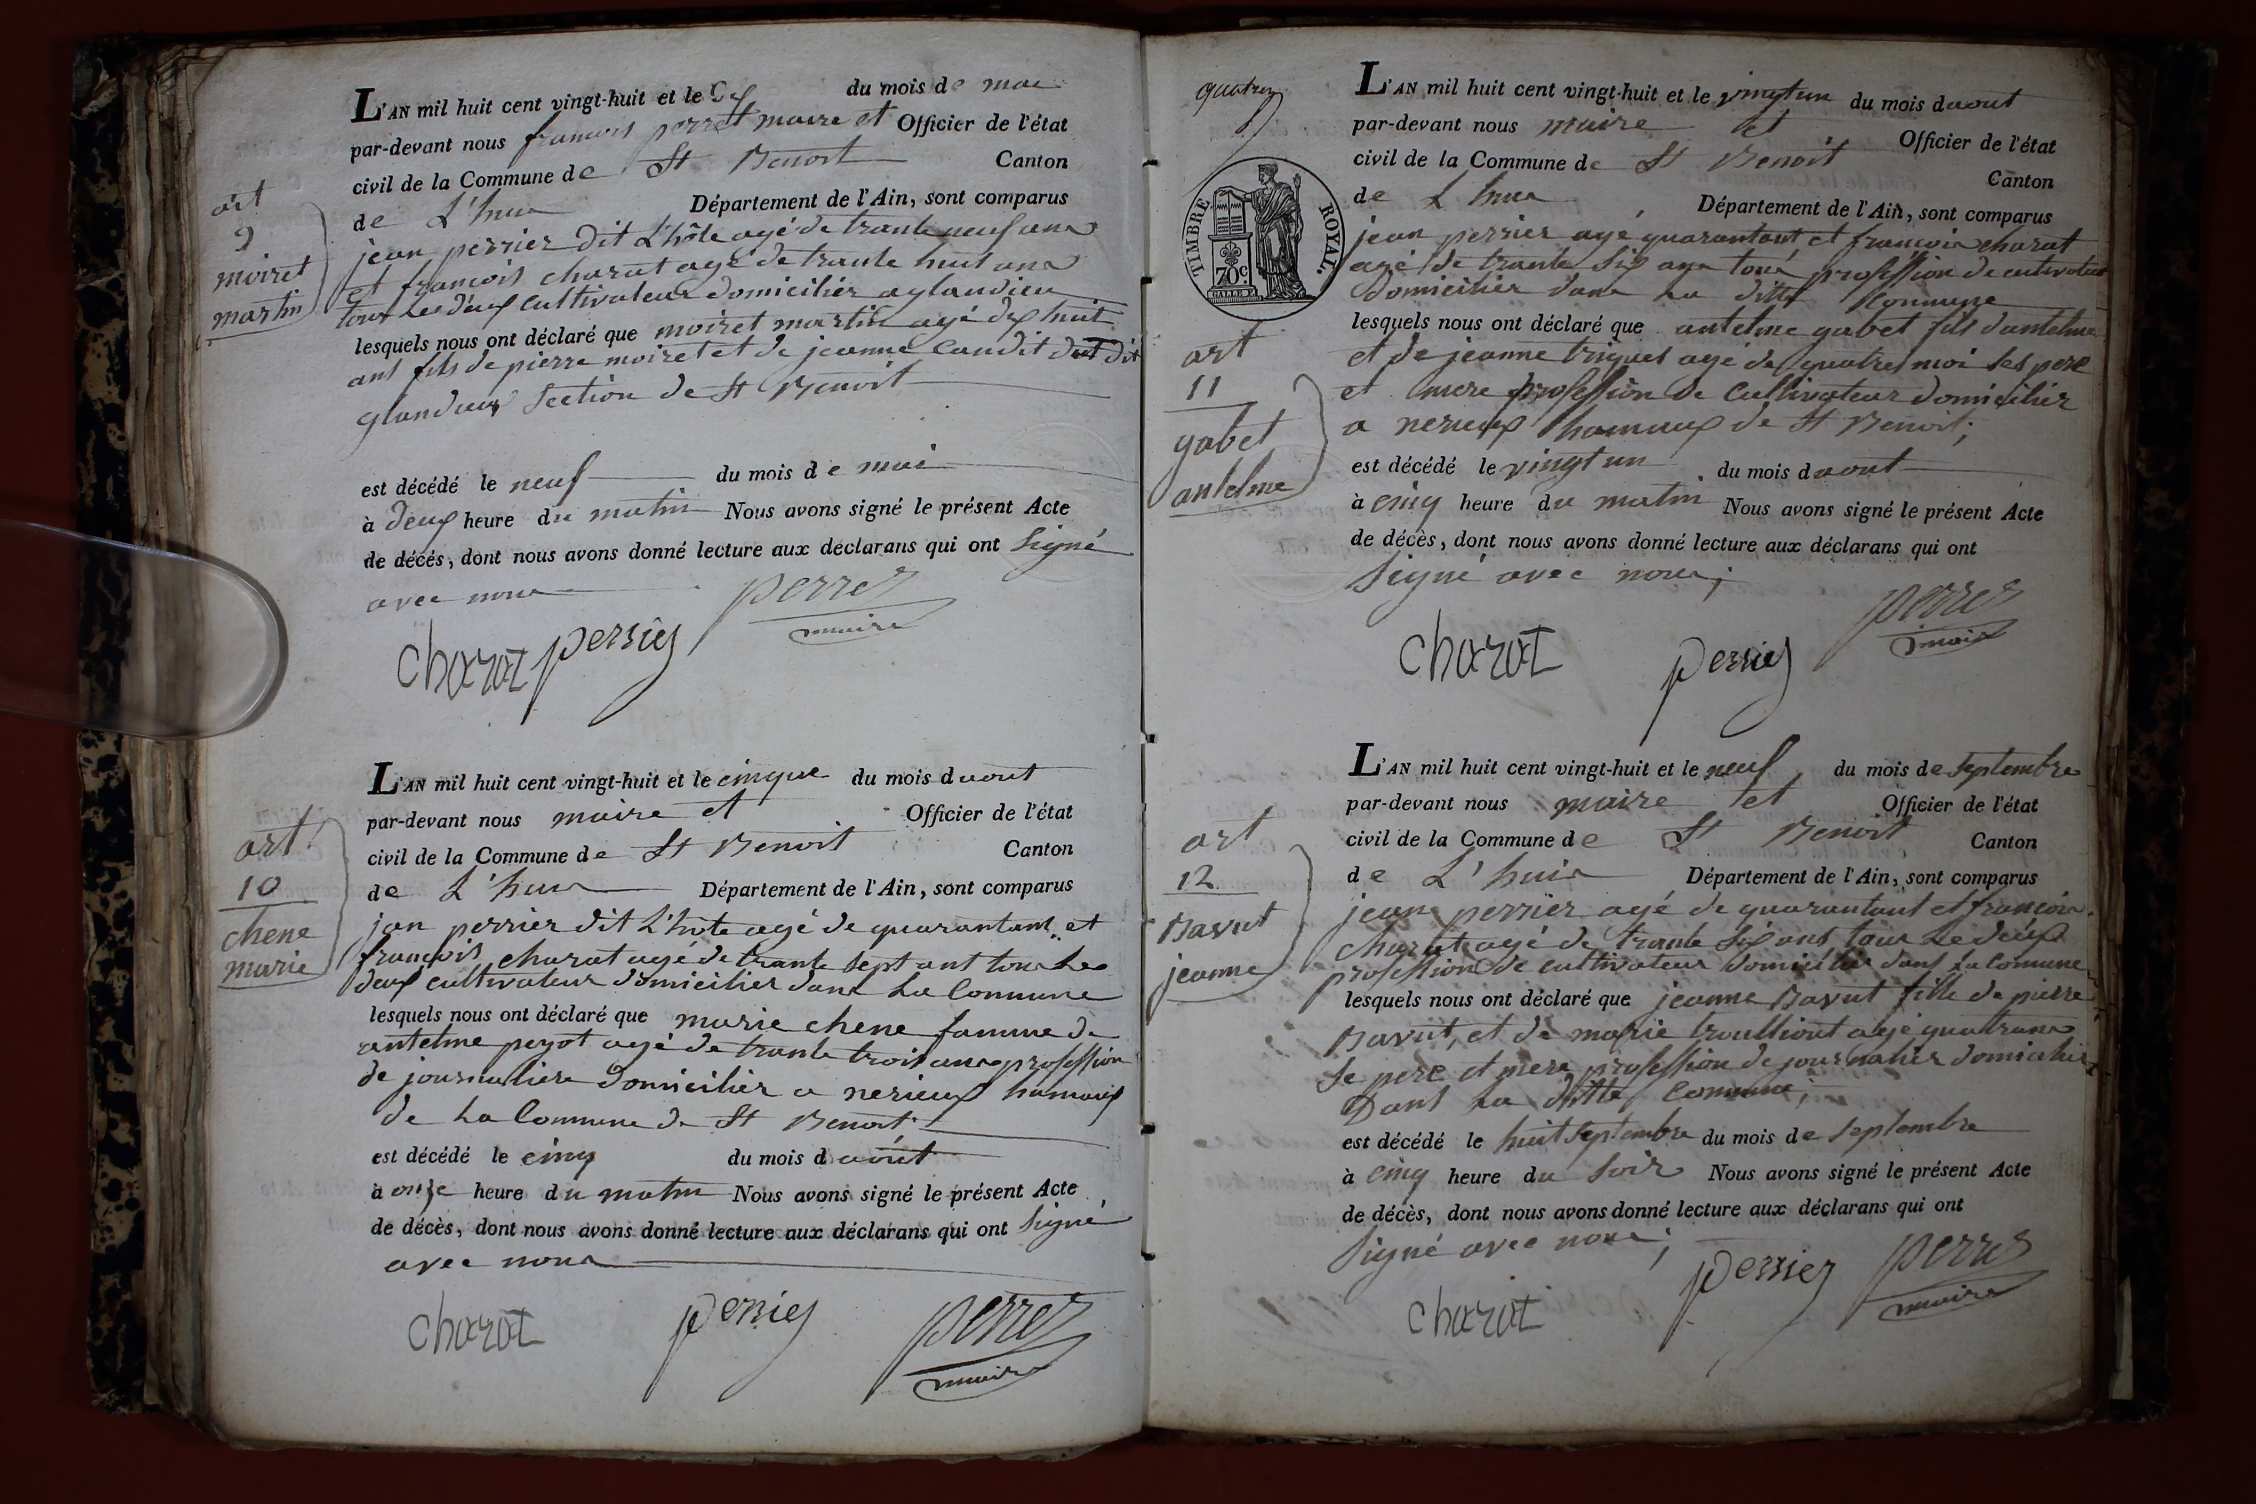 art
9
moiret
martin
L'AN mil huit cent vingt-huit et le du mois de mai
par-devant nous francois perret maire et Officier de l'état
civil de la Commune de St Benoit Canton
de L'huis Département de l'Ain, sont comparus
jean perrier dit L'hôte agé de trante neuf ans
et francois charat agé de trante huit ans
tous Les deux cultivateur domicilier a glandieu
lesquels nous ont déclaré que moiret martin agé dix huit
ans fils de pierre moiret et de jeanne dit
glandieux Section de St Benoit
est décédé le neuf du mois de mai
à deux heure du matin Nous avons signé le présent Acte
de décès, dont nous avons donné lecture aux déclarans qui ont Signé
avec nous
charat perrier perret
maire
art
10
chene
marie
L'AN mil huit cent vingt-huit et le cinque du mois daout
par-devant nous maire et Officier de l'état
civil de la Commune de St Benoit Canton
de L'huis Département de l'Ain, sont comparus
jan perrier dit L'hote agé de quarantant et
francois charat agé de trante Sept ant tous Les
deux cultivateur domicilier dans La Commune
lesquels nous ont déclaré que marie chene famme de
antelme peyot agé de trante trois ans profession
de journaliere domicilier a nerieux hamaux
de La Commune de St Benoit
est décédé le cinq du mois daout
à onze heure du matin Nous avons signé le présent Acte
de décès, dont nous avons donné lecture aux déclarans qui ont Signé
avec nous
charat perrier perret
maire
TIMBRE ROYAL.
70c.
art
11
gabet
antelme
L'AN mil huit cent vingt-huit et le vingtun du mois daout
par-devant nous maire et Officier de l'état
civil de la Commune de St Benoit Canton
de L'huis Département de l'Ain, sont comparus
jean perrier agé quarantant et francois charat
agé de trante Six ans tous profession de cultivateur
domicilier dans La ditte Commune
lesquels nous ont déclaré que antelme gabet fils dantelme
et de jeanne triquet agé de quatre moi Ses pere
et mere profession de Cultivateur domicilier
a nerieux hamaux de St Benoit;
est décédé le vingt un du mois daout
à cinq heure du matin Nous avons signé le présent Acte
de décès, dont nous avons donné lecture aux déclarans qui ont
Signé avec nous;
charat perrier perret
maire
art
12
Bavut
jeanne
L'AN mil huit cent vingt-huit et le neuf du mois de Septembre
par-devant nous maire et Officier de l'état
civil de la Commune de St Benoit Canton
de L'huis Département de l'Ain, sont comparus
jean perrier agé de quarantant et francois
charat agé de trante Six ans tous Le deux
profession de cultivateur domicilier dans La Comune
lesquels nous ont déclaré que jeanne Bavut fille de pierre
Bavut, et de marie agé quatrans
Se pere et mere profession de journalier domicilier
Dans La ditte Commune;
est décédé le huit Septembre du mois de Septembre
à cinq heure du Soir Nous avons signé le présent Acte
de décès, dont nous avons donné lecture aux déclarans qui ont
Signé avec nous;
charat perrier perret
maire